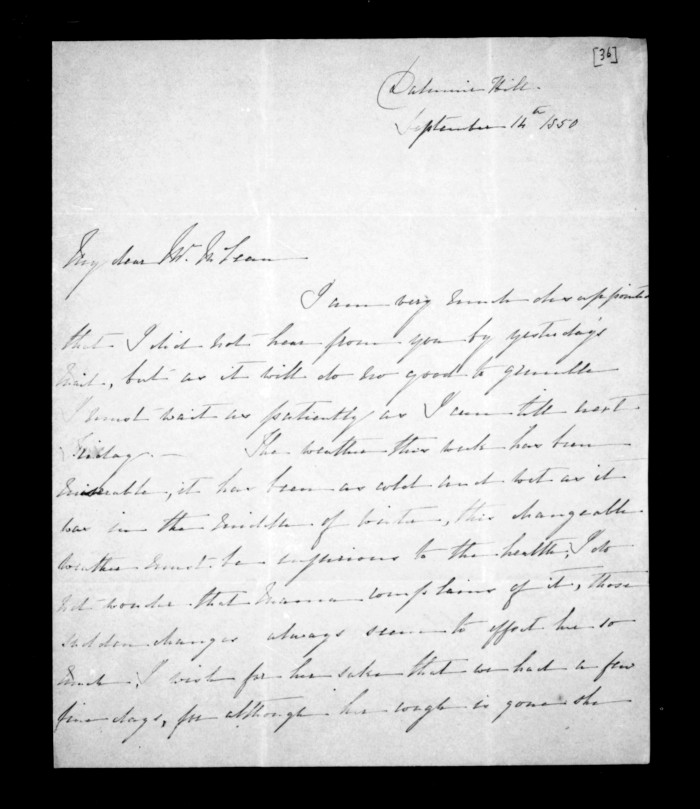 [36]
Dalmuir Hill.
September 14th 1850
My dear Mr. McLean
I am very much disappointed
that I did not hear from you by yesterday's
mail, but as it will do no good to grumble
I must wait as patiently as I can till next
Friday. — The weather this week has been
miserable, it has been as cold and wet as it
was in the middle of winter, this changeable
weather must be injurious to the health; I do
not wonder that Mama complains of it, those
sudden changes always seem to affect her so
much. I wish for her sake that we had a few
fine days, for although her cough is gone she